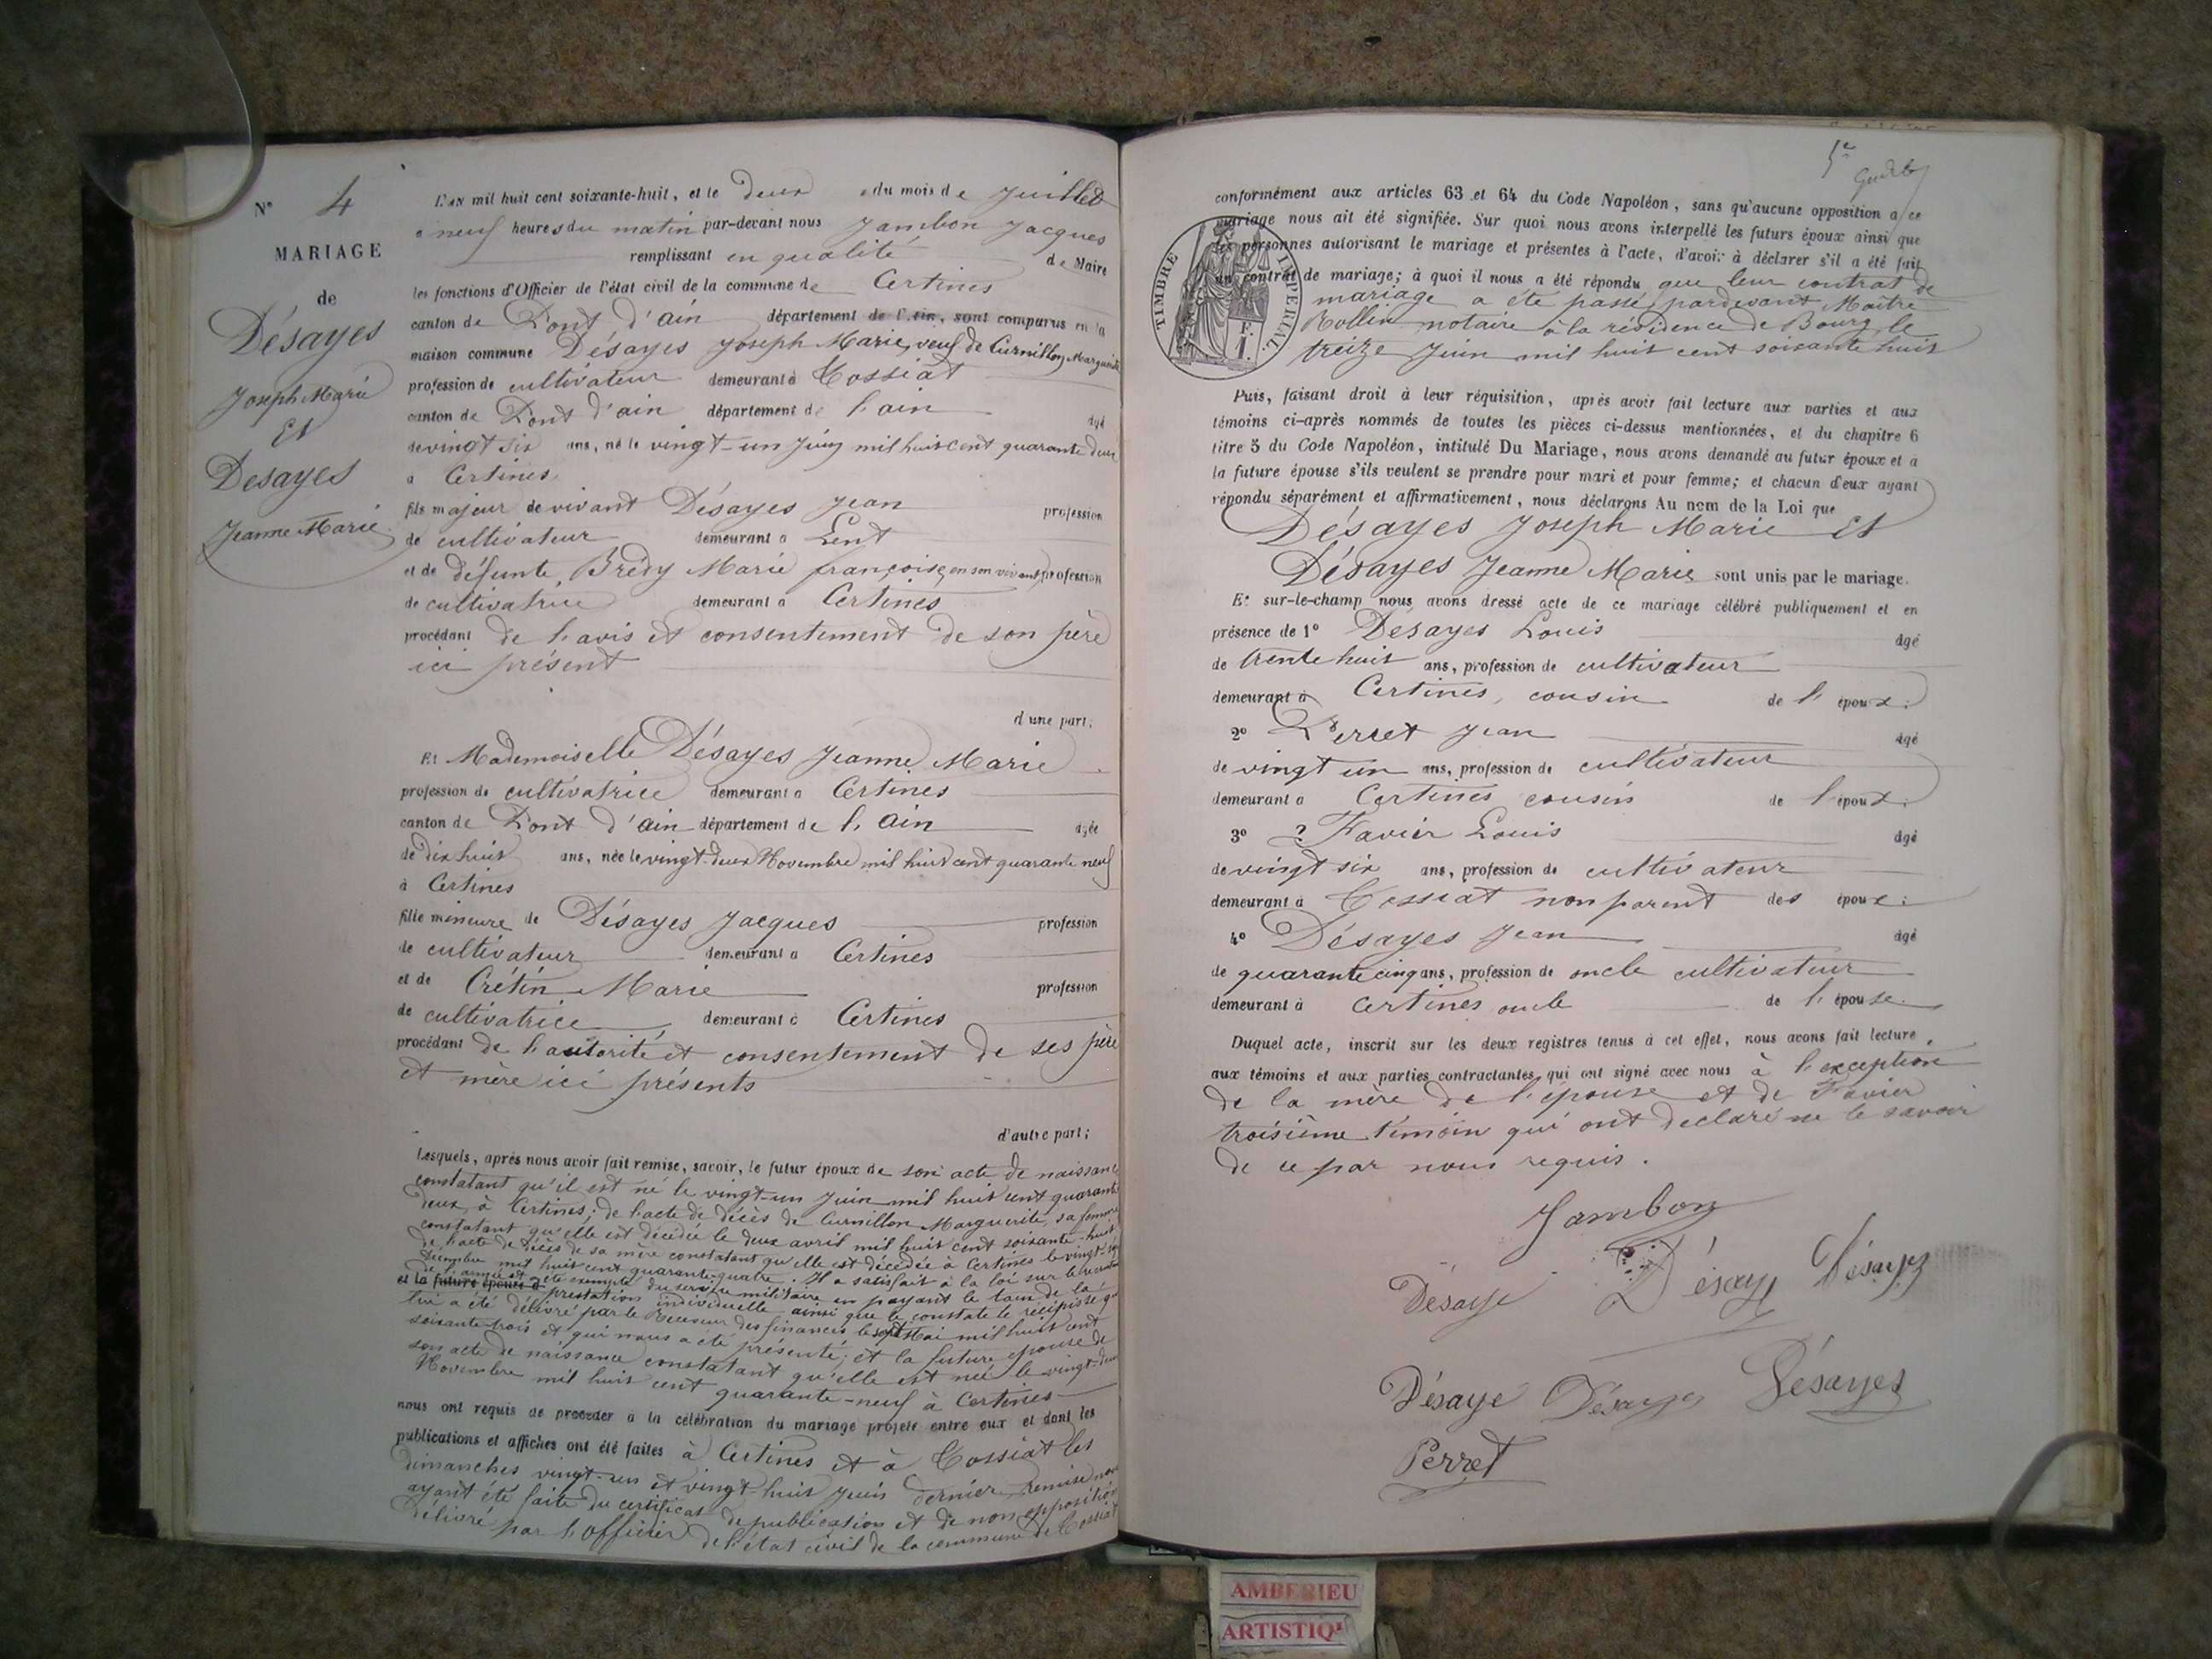 N° 4
MARIAGE
de
Désayes
Joseph Marie
Et
Desayes
Jeanne Marie
L'an mil huit cent soixante-huit, et le deux du mois de Juillet
à neuf heures du matin par-devant nous Jambon Jacques
remplissant en qualité de Maire
les fonctions d'Officier de l'état civil de la commune de Certines
canton de Pont d'ain département de l'Ain, sont comparus en la
maison commune Désayes Joseph Marie, veuf de Curnillon Marguerite
profession de cultivateur demeurant à Tossiat
canton de Pont d'ain département de l'ain âgé
de vingt six ans, né le vingt-un Juin mil huit cent quarante deux
à Certines
fils majeur de vivant Désayes Jean profession
de cultivateur demeurant à Lent
et de défunte Brédy Marie françoise, en son vivant profession
de cultivatrice demeurant à Certines
procédant de l'avis et consentement de son père
ici présent
d'une part;
Et Mademoiselle Désayes Jeanne Marie
profession de cultivatrice demeurant à Certines
canton de Pont d'Ain département de l'Ain âgée
de dix huit ans, née le vingt-deux Novembre mil huit cent quarante neuf
à Certines
fille mineure de Désayes Jacques profession
de cultivateur demeurant à Certines
et de Crétin Marie profession
de cultivatrice demeurant à Certines
procédant de l'autorité et consentement de ses père
et mère ici présents
d'autre part;
Lesquels, après nous avoir fait remise, savoir, le futur époux de son acte de naissance
constatant qu'il est né le vingt-un Juin mil huit cent quarante
deux à Certines; de l'acte de décès de Curnillon Marguerite, sa femme
constatant qu'elle est décédée le deux avril mil huit cent soixante-huit
de l'acte de décès de sa mère constatant qu'elle est décédée à Certines le vingt-
Décembre mil huit cent quarante-quatre. Il a satisfait à la loi sur le recrutement
de l'armée et a été exempté du service militaire en payant le taux de la
et la future épouse à prestation individuelle ainsi que le constate le récépissé qui
lui a été délivré par le Receveur des finances le sept Mai mil huit cent
soixante-trois et qui nous a été présenté; et la future épouse de
son acte de naissance constatant qu'elle est née le vingt-deux
Novembre mil huit cent quarante-neuf à Certines
nous ont requis de procéder à la célébration du mariage projeté entre eux et dont les
publications et affiches ont été faites à Certines et à Tossiat les
dimanches vingt-un et vingt-huit Juin dernier, Remise nous
ayant été faite du certificat de publication et de non opposition
délivré par l'officier de l'état civil de la commune de Tossiat
5e
conformément aux articles 63 et 64 du Code Napoléon, sans qu'aucune opposition à ce
mariage nous ait été signifiée. Sur quoi nous avons interpellé les futurs époux ainsi que
les personnes autorisant le mariage et présentes à l'acte, d'avoir à déclarer s'il a été fait
un contrat de mariage; à quoi il nous a été répondu que leur contrat de
mariage a été passé pardevant Maître
Rollin notaire à la résidence de Bourg, le
treize Juin mil huit cent soixante huit
TIMBRE IMPÉRIAL
F.
I.
Puis, faisant droit à leur réquisition, après avoir fait lecture aux parties et aux
témoins ci-après nommés de toutes les pièces ci-dessus mentionnées, et du chapitre 6
titre 5 du Code Napoléon, intitulé Du Mariage, nous avons demandé au futur époux et à
la future épouse s'ils veulent se prendre pour mari et pour femme; et chacun d'eux ayant
répondu séparément et affirmativement, nous déclarons Au nom de la Loi que
Désayes Joseph Marie Et
Désayes Jeanne Marie sont unis par le mariage.
Et sur-le-champ nous avons dressé acte de ce mariage célébré publiquement et en
présence de 1° Désayes Louis âgé
de trente huit ans, profession de cultivateur
demeurant à Certines, cousin de l'époux;
2° Perret Jean âgé
de vingt un ans, profession de cultivateur
demeurant à Certines cousin de l'époux;
3° Favier Louis âgé
de vingt six ans, profession de cultivateur
demeurant à Tossiat non parent des époux;
4° Désayes Jean âgé
de quarante cinq ans, profession de oncle cultivateur
demeurant à Certines oncle de l'épouse.
Duquel acte, inscrit sur les deux registres tenus à cet effet, nous avons fait lecture
aux témoins et aux parties contractantes qui ont signé avec nous à l'exception
de la mère de l'épouse et de Favier
troisième témoin qui ont déclaré ne le savoir
de ce par nous requis.
Jambon
Désaye Désaye Désayes
Désaye Désayes Désayes
Perret
AMBERIEU
ARTISTIQ